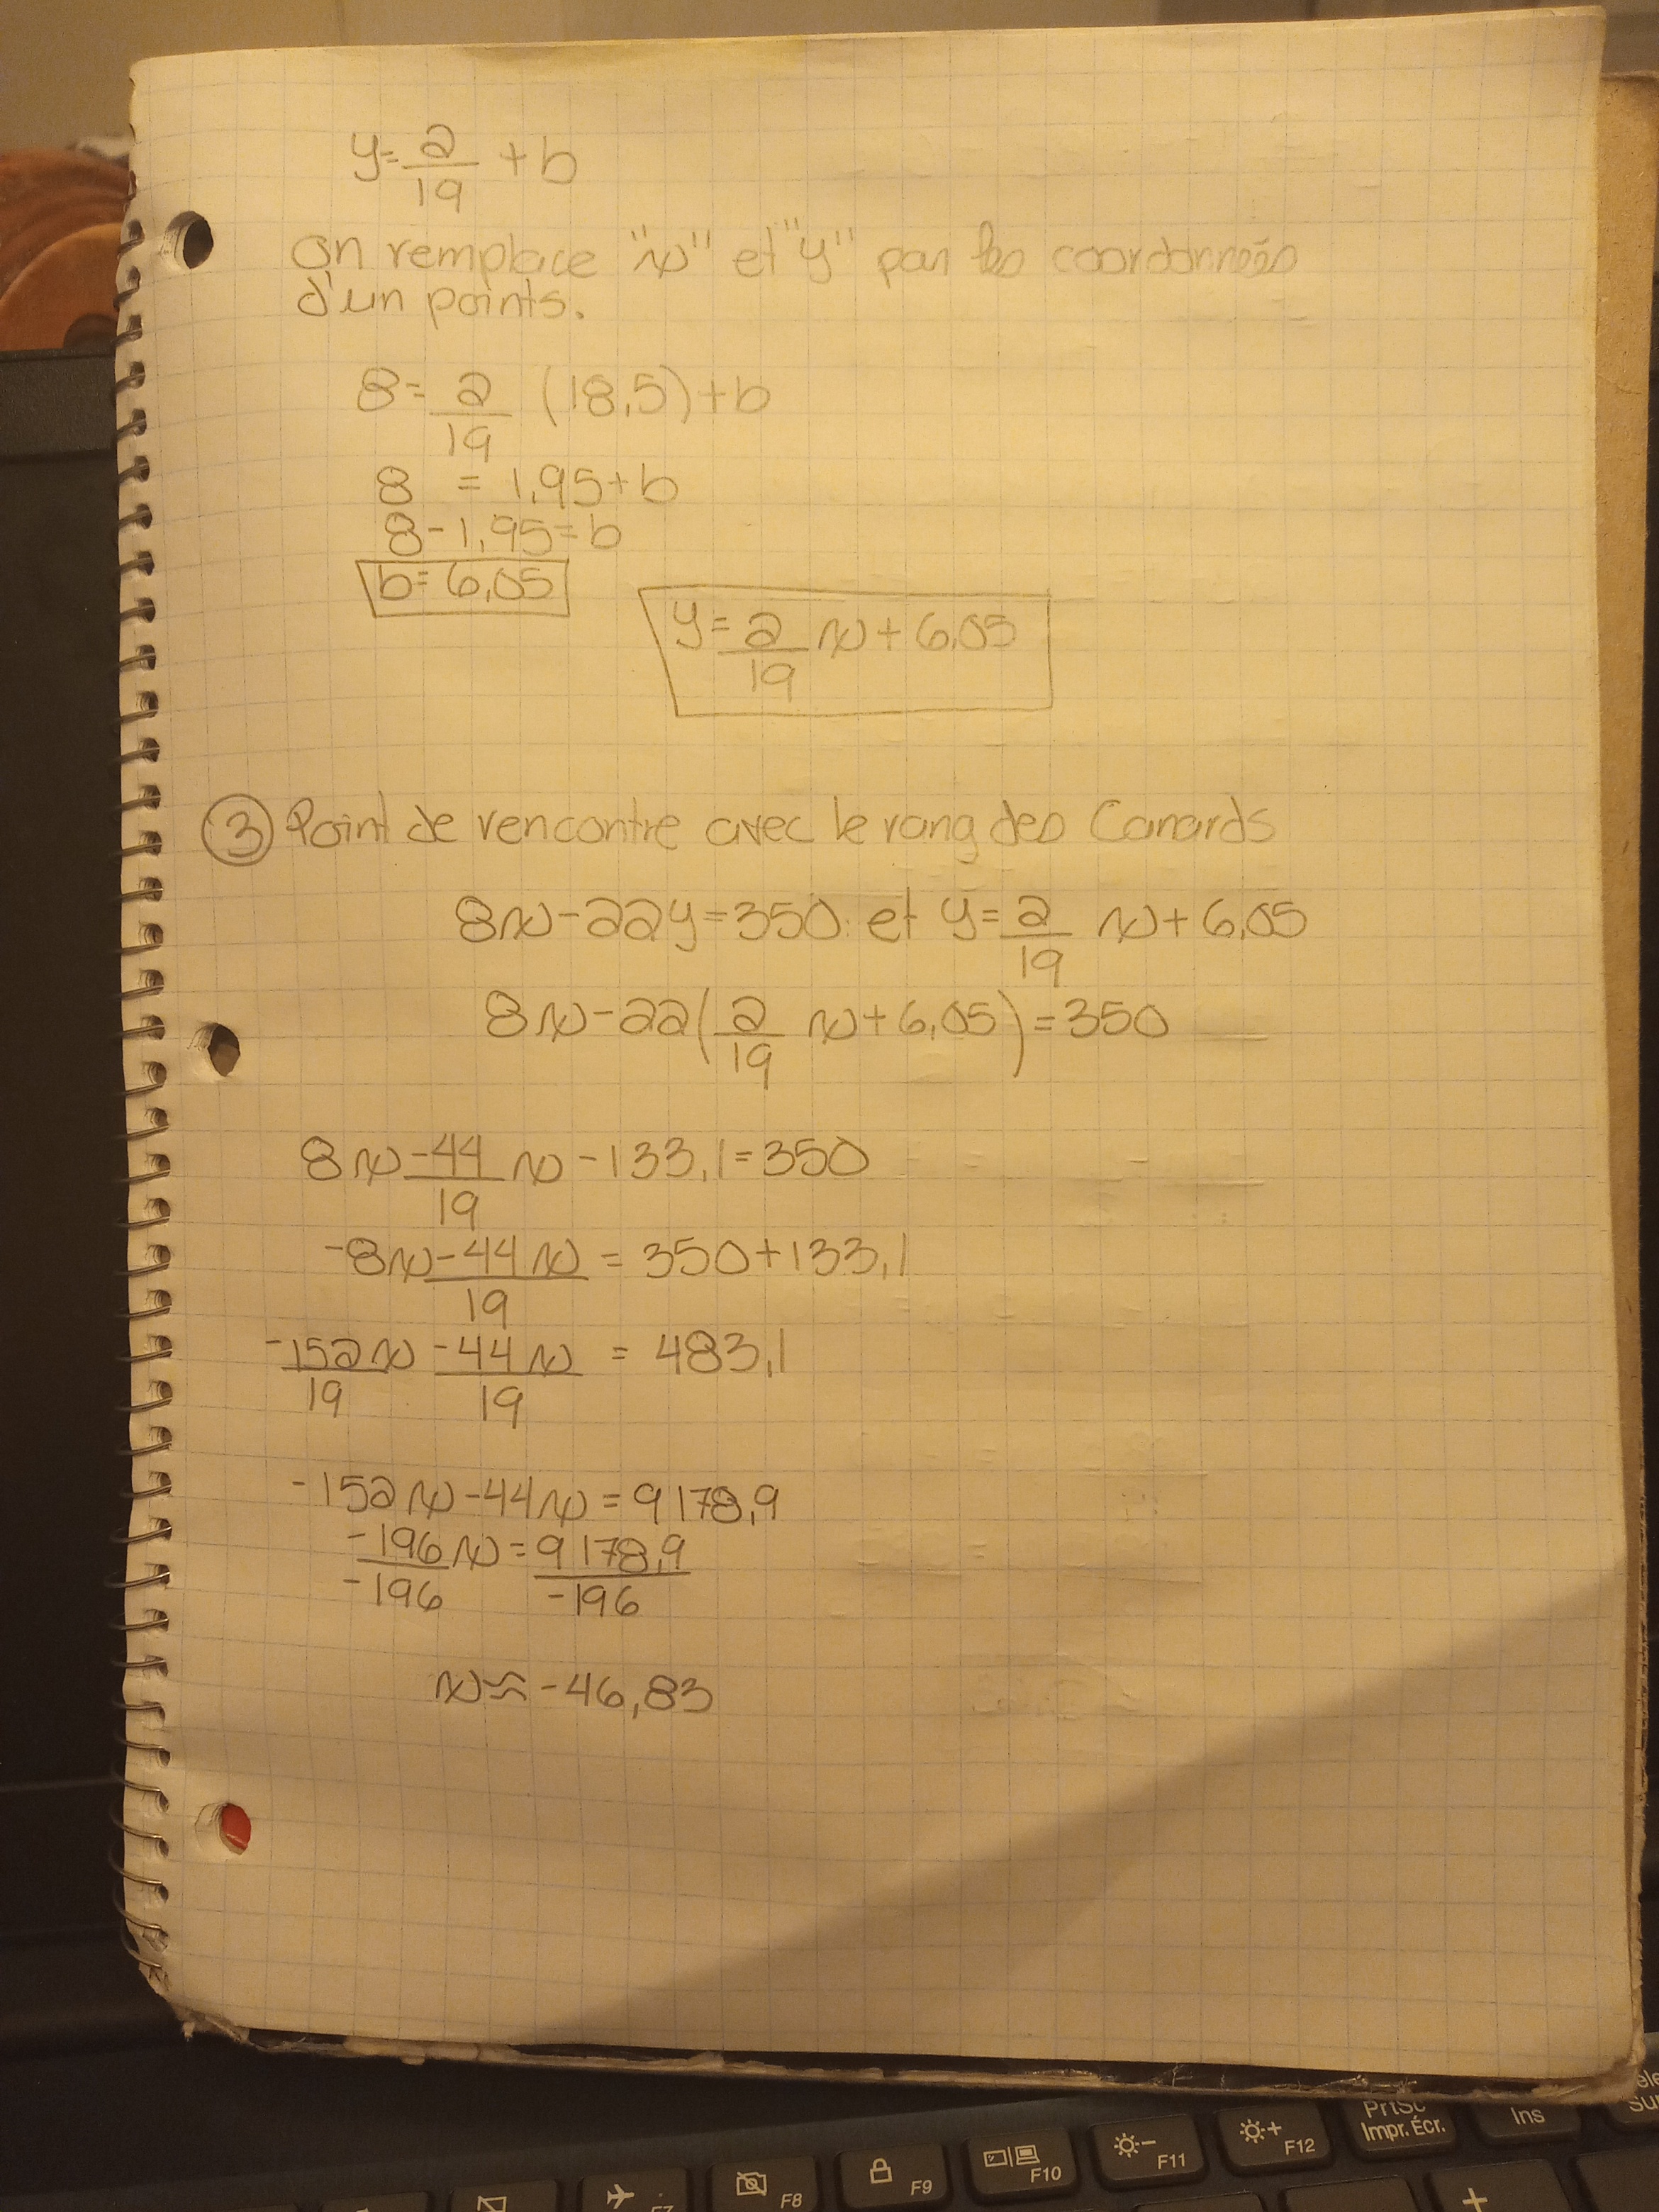 y = 2/19 + b
on remplace "x" et "y" par les coordonnées
d'un points.
8 = 2/19 (18,5) + b
8 = 1,95 + b
8 - 1,95 = b
b = 6,05
y = 2/19 x + 6,05
③ Point de rencontre avec le rang des Canards
8x - 22y = 350 et y = 2/19 x + 6,05
8x - 22(2/19 x + 6,05) = 350
8x -44/19 x - 133,1 = 350
-8x -44x/19 = 350 + 133,1
-152x/19 -44x/19 = 483,1
-152x - 44x = 9178,9
-196x/-196 = 9178,9/-196
x ≈ -46,83
PrtSc
Impr. Écr.
Ins
F7
F8
F9
F10
F11
F12